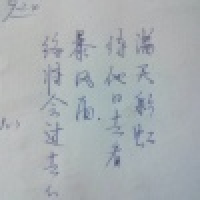 满天彩虹
待他日去看
暴风雨.
终将会过去